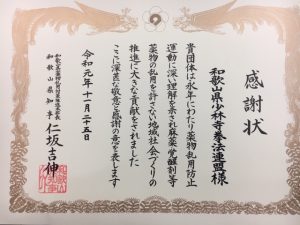 感謝状
和歌山県少林寺拳法連盟様
貴団体は永年にわたり薬物乱用防止
運動に深い理解を示され麻薬覚醒剤等
薬物の乱用を許さない地域社会づくりの
推進に大きな貢献をされました
ここに深甚な敬意と感謝の意を表します
令和元年十一月二十五日
和歌山県知事 仁坂吉伸